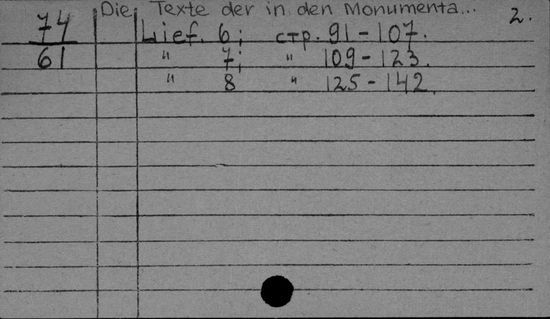 Die Texte der in den Monumenta... 2.
74 Lief. 6; стр. 91-107.
61 " 7; " 109-123.
" 8 " 125-142.